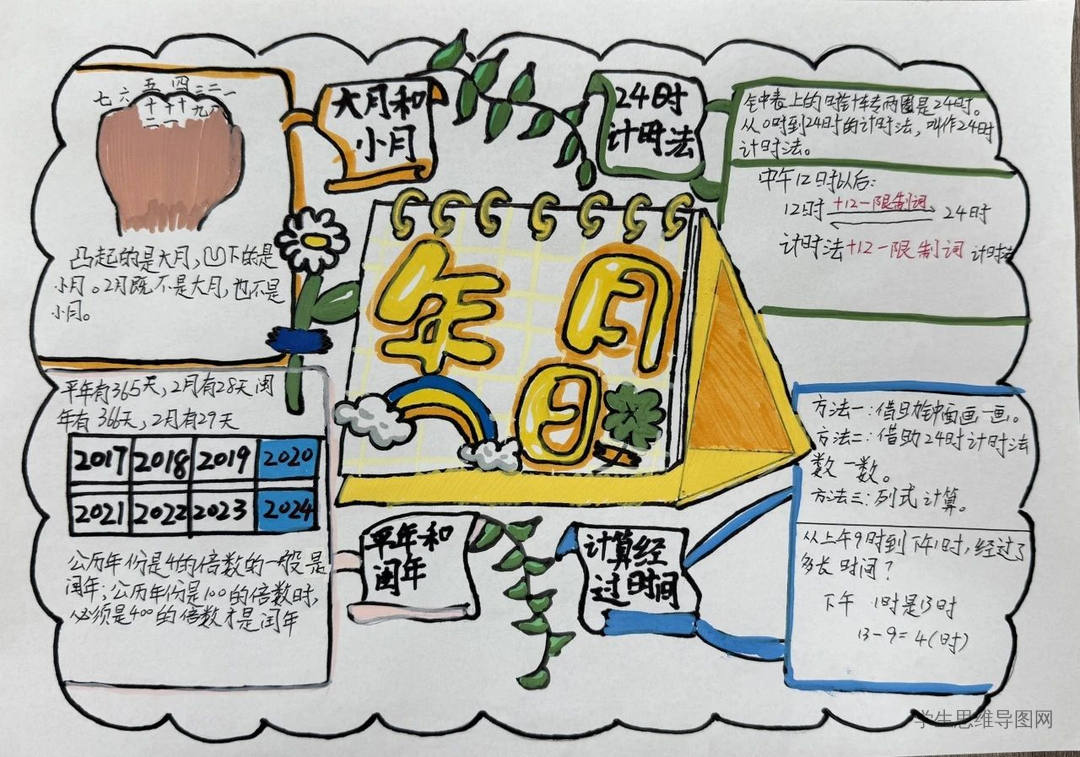 大月和
小月
七 六 五 四 三 二 一
十二 十一 十 九 八
凸起的是大月,凹下的是
小月。2月既不是大月,也不是
小月。
24时
计时法
钟表上的时针转两圈是24时。
从0时到24时的计时法,叫作24时
计时法。
中午12时以后:
12时 +12-限制词 24时
计时法 +12-限制词 计时法
年 月
日
平年和
闰年
平年有365天,2月有28天 闰
年有366天,2月有29天
2017 2018 2019 2020
2021 2022 2023 2024
公历年份是4的倍数的一般是
闰年;公历年份是100的倍数时,
必须是400的倍数才是闰年
计算经
过时间
方法一:借助钟面画一画。
方法二:借助24时计时法
数一数。
方法三:列式计算。
从上午9时到下午1时,经过了
多长时间?
下午 1时是13时
13-9=4(时)
学生思维导图网